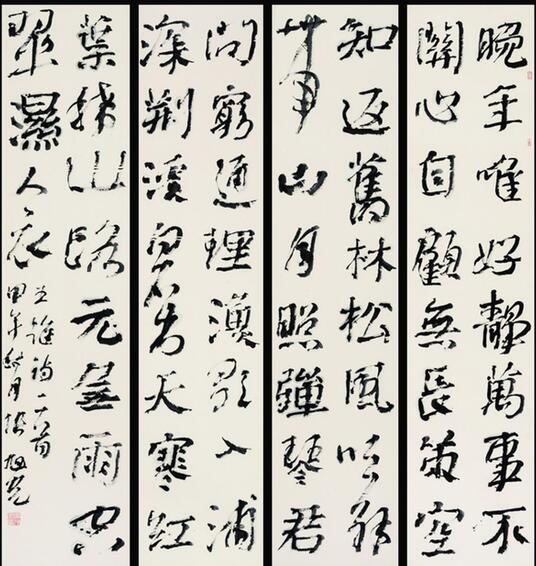 晚年唯好靜萬事不
關心自顧無長策空
知返舊林松風吹解
帶山月照彈琴君
問窮通理漁歌入浦
深荊溪白石出天寒紅
葉稀山路元無雨空
翠濕人衣
王維詩二首
甲午月旭光